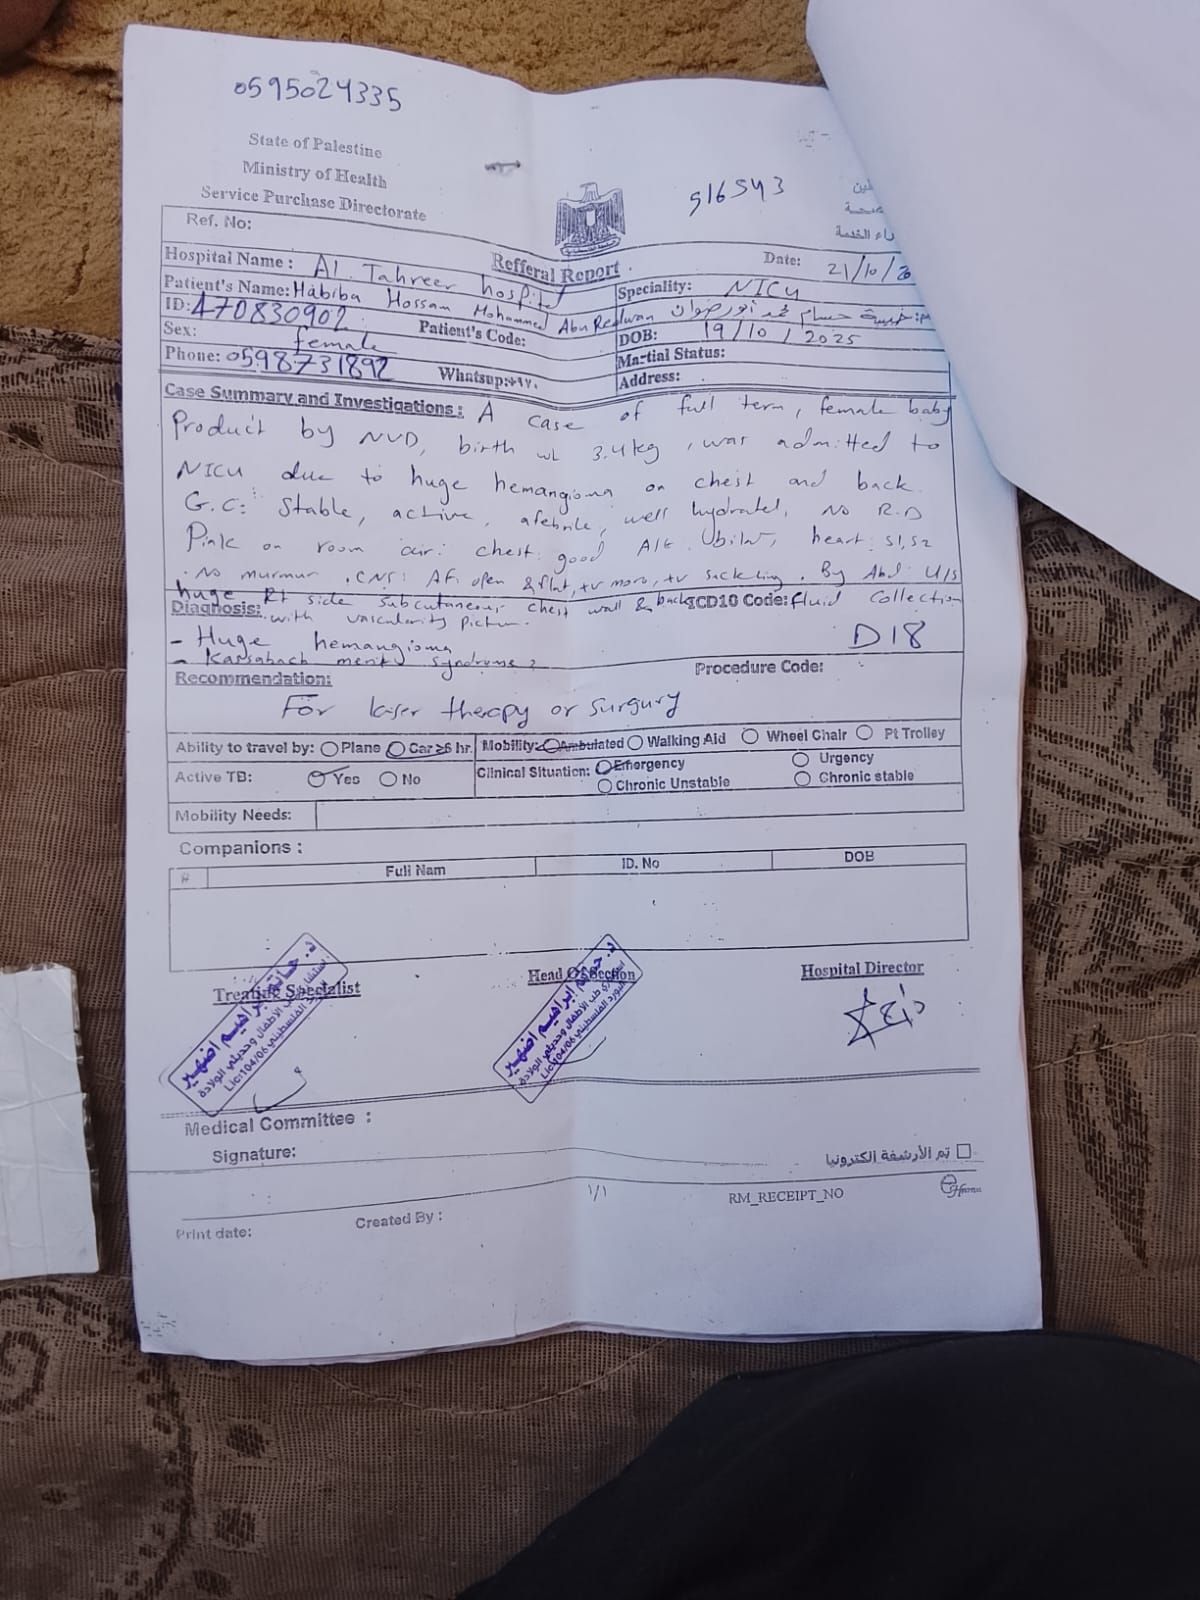 0595024335
State of Palestine
Ministry of Health
Service Purchase Directorate
516543
Ref. No:
Refferal Report
Date: 21/10/20
Hospital Name: Al. Tahreer hospital
Speciality: NICU
Patient's Name: Habiba Hossam Mohammed Abu Redwan حبيبة حسام محمد أبورضوان
ID: 470830902
Patient's Code:
DOB: 19/10/2025
Sex: female
Martial Status:
Phone: 0598731892
Whatsup:+٩٧٠
Address:
Case Summary and Investigations: A case of full term, female baby
Product by NVD, birth wt 3.4kg, was admitted to
NICU due to huge hemangioma on chest and back.
G.C: Stable, active, afebrile, well hydrated, no R.D
Pink on room air: chest: good A/E bilat, heart: S1,S2
. No murmur. CNS: AF. open & flat, +v moro, +v suckling. By Abd: U/S
huge Rt side subcutaneous chest wall & back fluid collection
with vascularity picture.
Diagnosis:
ICD10 Code:
D18
- Huge hemangioma
- Kassabach merit syndrome?
Procedure Code:
Recommendation:
For laser therapy or Surgury
Ability to travel by: Plane Car ≥6 hr.
Mobility: Ambulated Walking Aid Wheel Chair Pt Trolley
Active TB: Yes No
Clinical Situation: Emergency Urgency
Chronic Unstable Chronic stable
Mobility Needs:
Companions :
# Full Nam ID. No DOB
Treating Specialist
Head Of Section
Hospital Director
د. حاتم ابراهيم اضهير
Lic:104/06
د. حاتم ابراهيم اضهير
Lic:104/06
Medical Committee :
Signature:
تم الأرشفة الكترونيا
١/١
RM_RECEIPT_NO
Print date:
Created By :